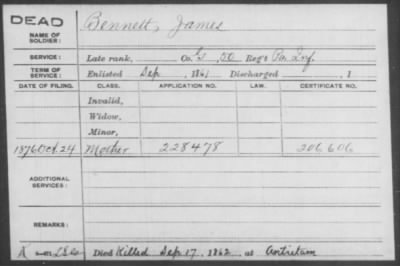 DEAD
NAME OF SOLDIER: Bennett, James
SERVICE: Late rank, Co. G, 50 Reg't Pa. Inf.
TERM OF SERVICE: Enlisted Sep , 1861 Discharged , 1
DATE OF FILING. CLASS. APPLICATION NO. LAW. CERTIFICATE NO.
Invalid,
Widow,
Minor,
1876 Oct. 24 Mother 228478 206606
ADDITIONAL SERVICES:
REMARKS:
Died Killed Sep 17, 1862, at Antietam